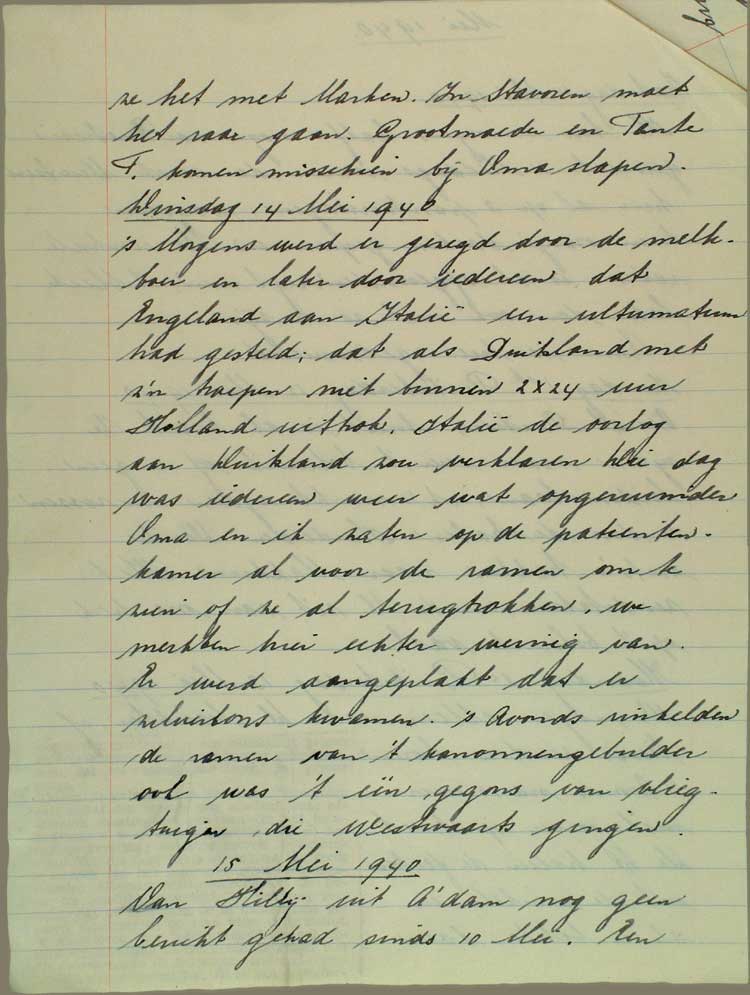 ze het met Marken. In Stavoren moet
het raar gaan. Grootmoeder en Tante
F. komen misschien bij Oma slapen.
Dinsdag 14 Mei 1940
's Morgens werd er gezegd door de melk-
boer en later door iedereen dat
Engeland aan Italië een ultumatum
had gesteld; dat als Duitsland met
z'n troepen niet binnen 2x24 uur
Holland uittrok, Italië de oorlog
aan Duitsland zou verklaren Die dag
was iedereen weer wat opgeruimder
Oma en ik zaten op de patienten-
kamer al voor de ramen om te
zien of ze al terugtrokken, we
merkten hier echter weinig van.
Er werd aangeplakt dat er
zilverbons kwamen. 's Avonds rinkelden
de ramen van 't kanonnengebulder
ook was 't één gegons van vlieg-
tuigen die Westwaarts gingen.
15 Mei 1940
Van Hilly uit A'dam nog geen
bericht gehad sinds 10 Mei. Een